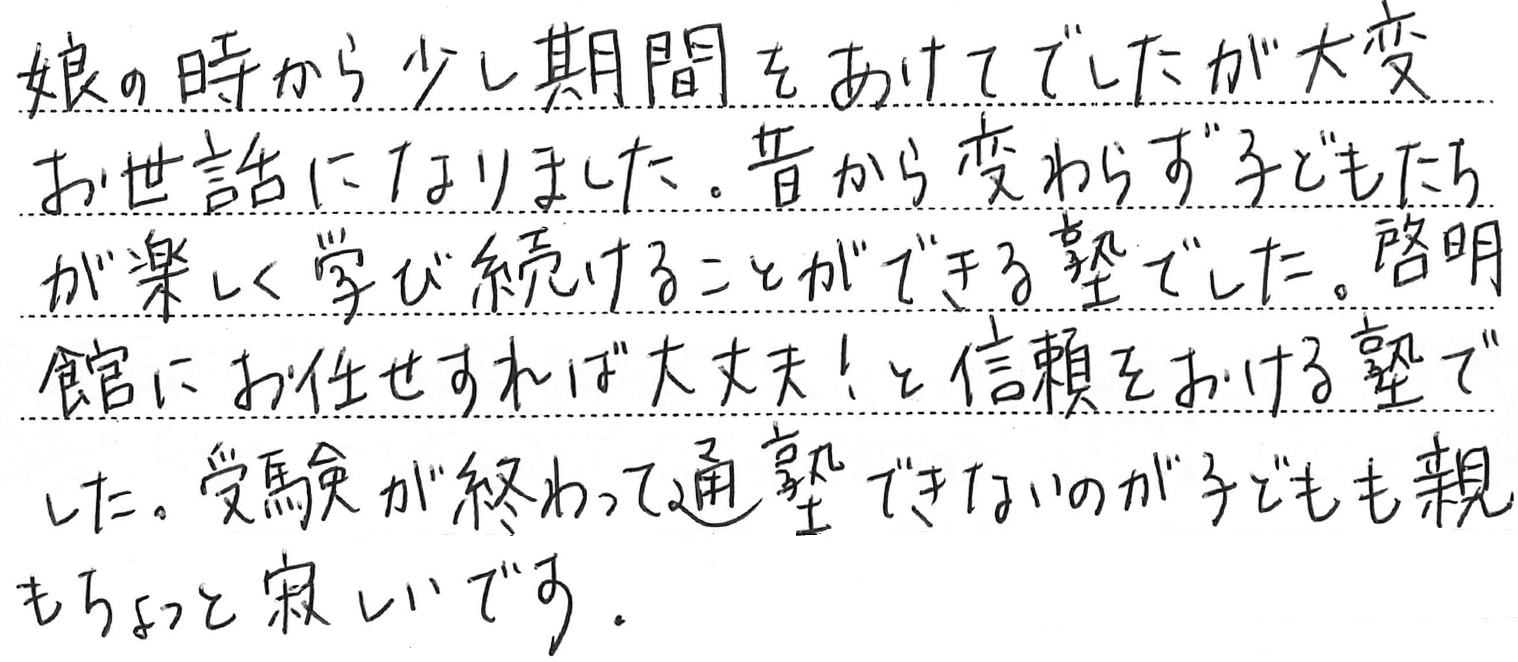 娘の時から少し期間をあけてでしたが大変
お世話になりました。昔から変わらず子どもたち
が楽しく学び続けることができる塾でした。啓明
館にお任せすれば大丈夫!と信頼をおける塾で
した。受験が終わって通塾できないのが子どもも親
もちょっと寂しいです.